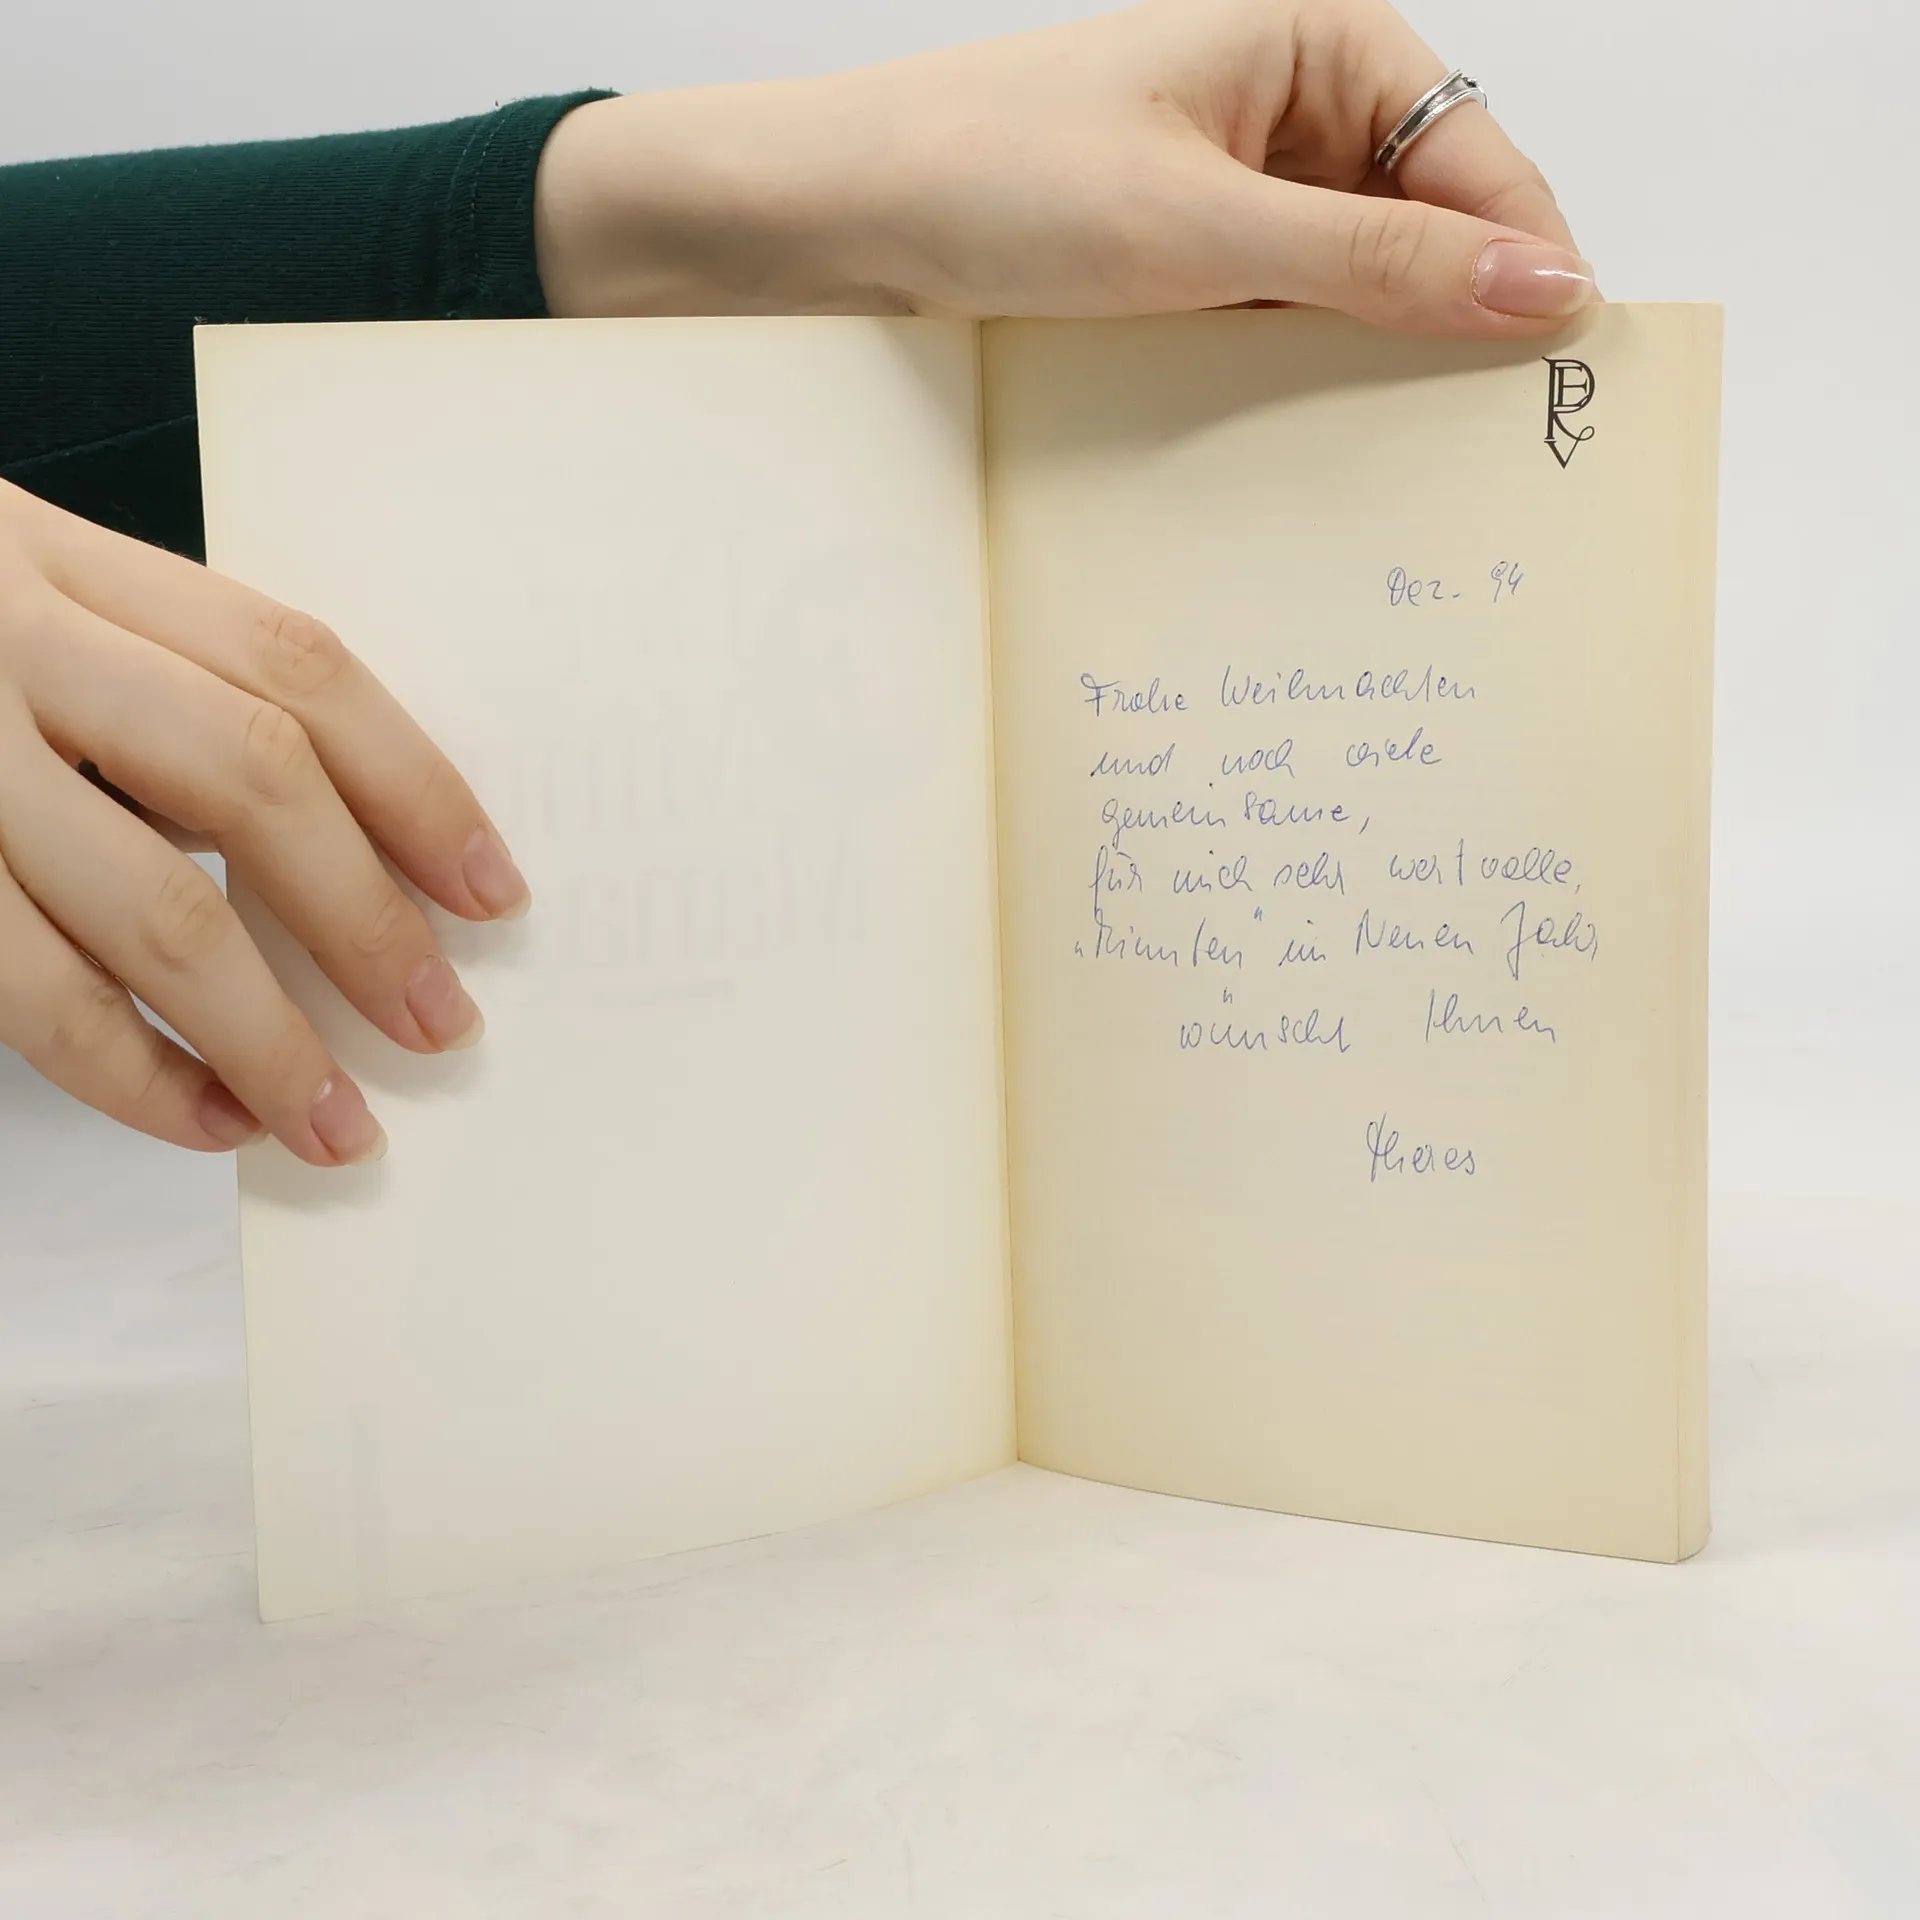 PEV
Dez. 94
Frohe Weihnachten
und noch viele
gemeinsame,
für mich sehr wertvolle,
im Neuen Jahr,
wünscht Ihnen
Theres